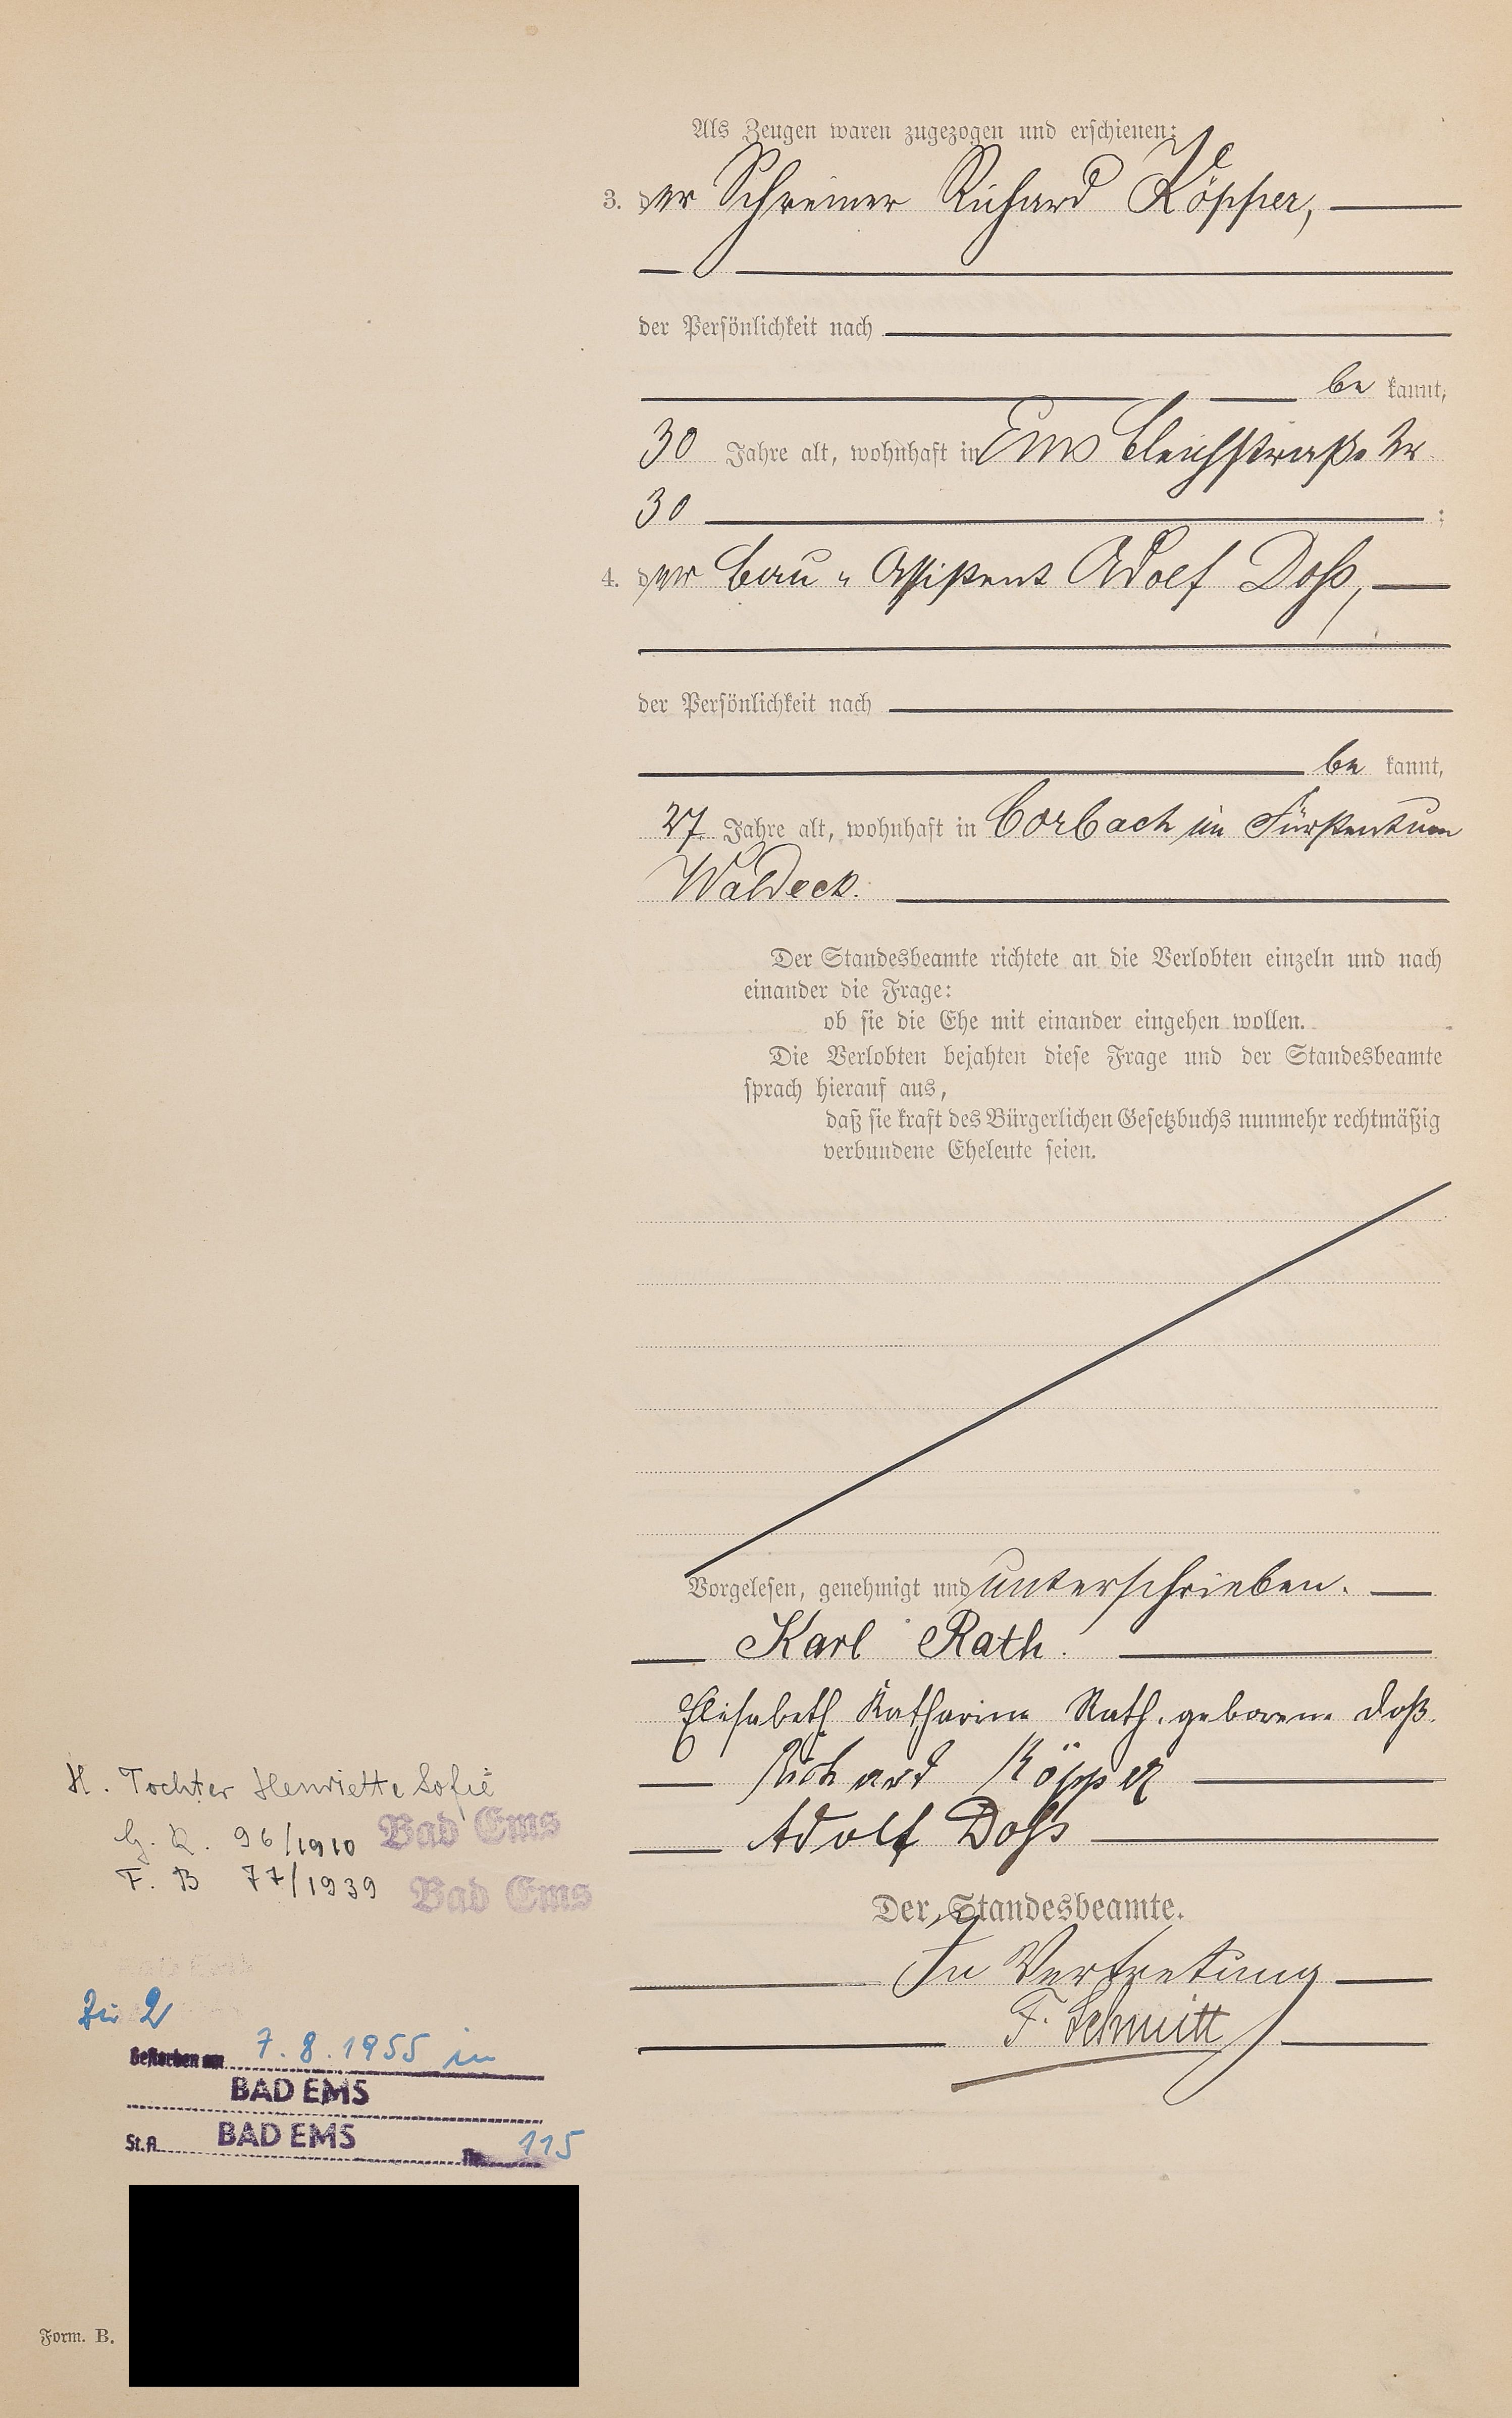 Als Zeugen waren zugezogen und erschienen:
3. der Schreiner Richard Köpper,
der Persönlichkeit nach
be kannt,
30 Jahre alt, wohnhaft in Ems Bleichstraße Nr.
30 ;
4. der Bau-Assistent Adolf Doß,
der Persönlichkeit nach
be kannt,
27 Jahre alt, wohnhaft in Corbach im Fürstentum
Waldeck.
Der Standesbeamte richtete an die Verlobten einzeln und nach
einander die Frage:
ob sie die Ehe mit einander eingehen wollen.
Die Verlobten bejahten diese Frage und der Standesbeamte
sprach hierauf aus,
daß sie kraft des Bürgerlichen Gesetzbuchs nunmehr rechtmäßig
verbundene Eheleute seien.
Vorgelesen, genehmigt und unterschrieben.
Karl Rath.
Elisabeth Katharina Rath, geborene Doß.
Richard Köpper
Adolf Doß
Der Standesbeamte.
In Vertretung
F. Schmitt
H. Tochter Henriette Sofie
G. R. 96/1910 Bad Ems
F. B 77/1939 Bad Ems
Zu 2
Gestorben am 7.8.1955 in
BAD EMS
St.A. BAD EMS Nr. 115
Form. B.